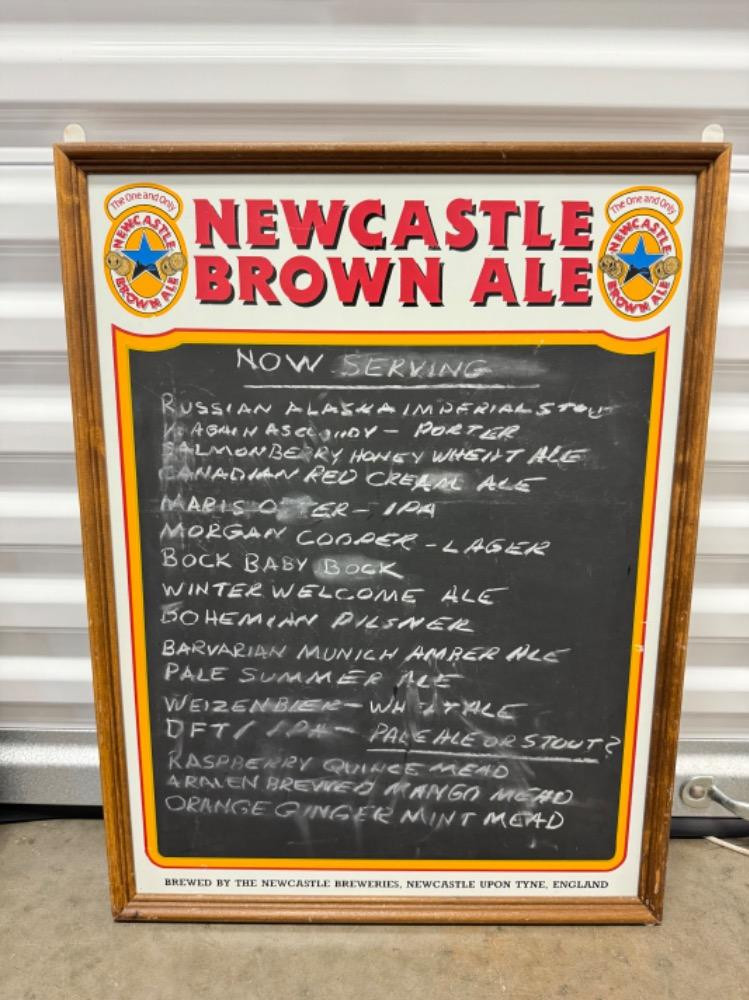 The One and Only
NEWCASTLE
BROWN ALE
NEWCASTLE
BROWN ALE
The One and Only
NEWCASTLE
BROWN ALE
NOW SERVING
RUSSIAN ALASKA IMPERIAL STOUT
PORTER
SALMONBERRY HONEY WHEAT ALE
CANADIAN RED CREAM ALE
MARIS OTTER - IPA
MORGAN COOPER - LAGER
BOCK BABY BOCK
WINTER WELCOME ALE
BOHEMIAN PILSNER
BARVARIAN MUNICH AMBER ALE
PALE SUMMER ALE
WEIZENBIER - WHEAT ALE
IPA - PALE ALE OR STOUT?
RASPBERRY QUINCE MEAD
BREWED MANGO MEAD
ORANGE GINGER MINT MEAD
BREWED BY THE NEWCASTLE BREWERIES, NEWCASTLE UPON TYNE, ENGLAND